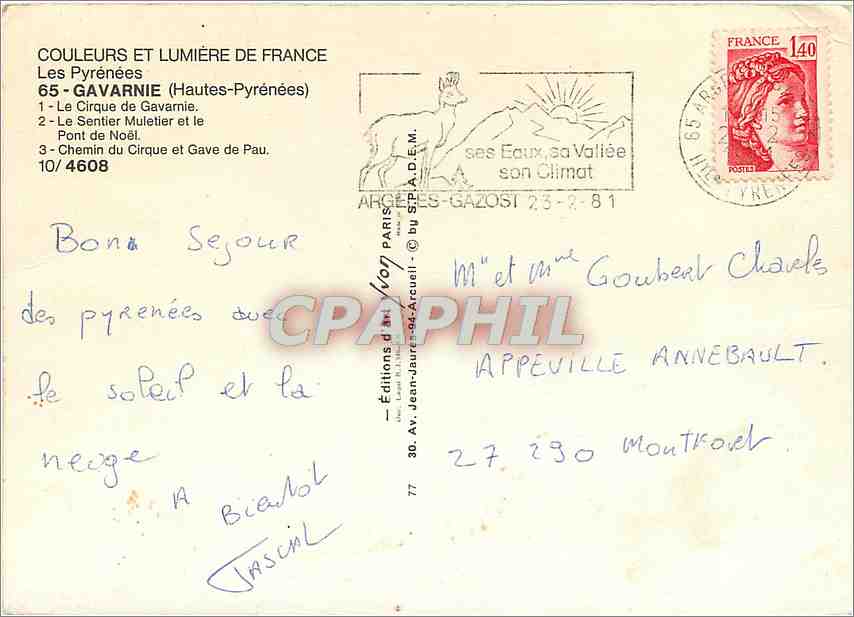 COULEURS ET LUMIÈRE DE FRANCE
Les Pyrénées
65 - GAVARNIE (Hautes-Pyrénées)
1 - Le Cirque de Gavarnie.
2 - Le Sentier Muletier et le
Pont de Noël.
3 - Chemin du Cirque et Gave de Pau.
10/ 4608
Bon Sejour
des pyrenées avec
le soleil et la
neige
A Bientot
PASCAL
— Éditions d'art Yvon PARIS
30. Av. Jean-Jaures-94-Arcueil - © by S.P.A.D.E.M.
77
ses Eaux, sa Vallée
son Climat
ARGELES-GAZOST 23-2-81
FRANCE 1,40
POSTES
65 ARGE
15
2
HTES PYRENEES
Mr et Mme Goubert Charles
APPEVILLE ANNEBAULT.
27 290 Montfort
CPAPHIL